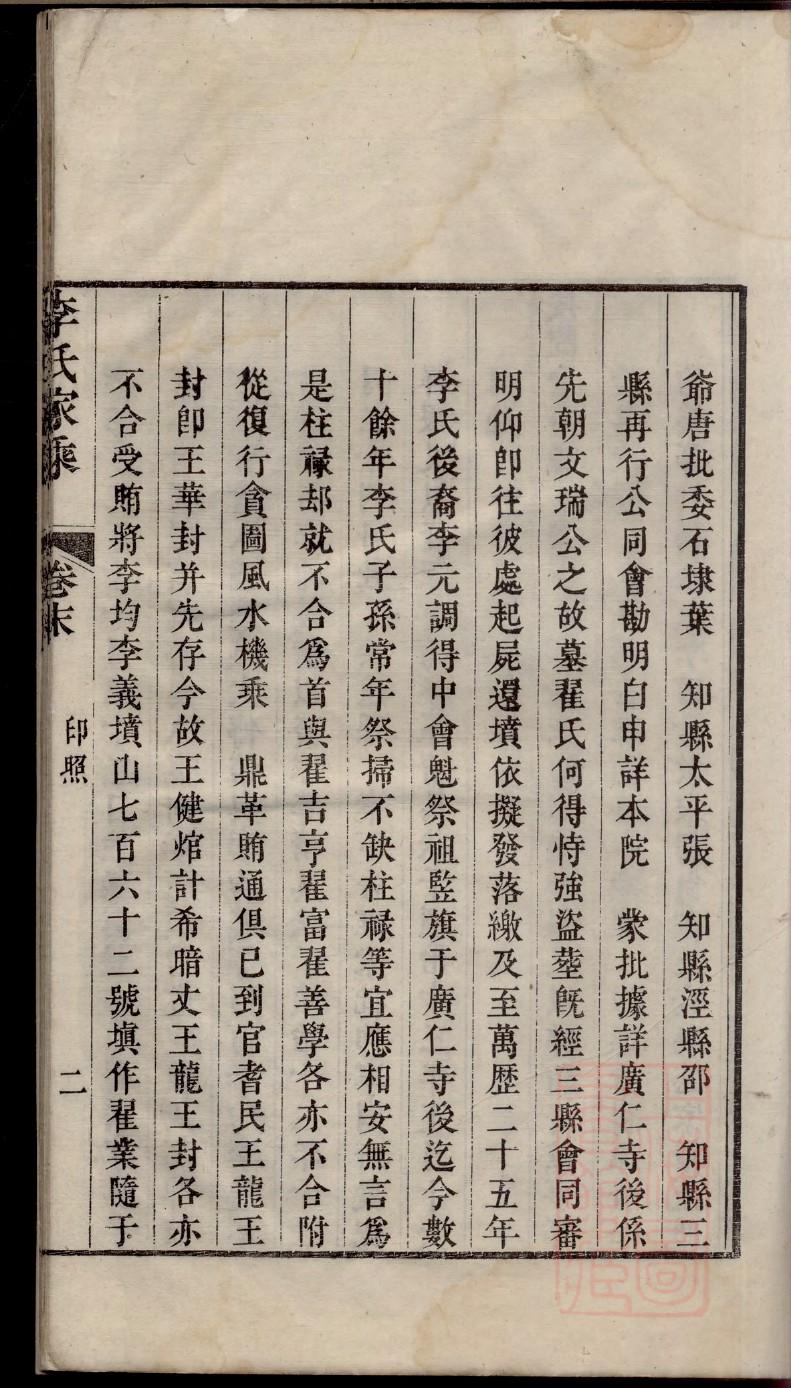 爺唐批委石埭葉　知縣太平張　知縣涇縣邵　知縣三
縣再行公同會勘明白申詳本院　蒙批據詳廣仁寺後係
先朝文瑞公之故墓翟氏何得恃強盜塟旣經三縣會同審
明仰卽往彼處起屍還墳依擬發落繳及至萬歷二十五年
李氏後裔李元調得中會魁祭祖竪旗于廣仁寺後迄今數
十餘年李氏子孫常年祭掃不缺柱祿等宜應相安無言爲
是柱祿却就不合爲首與翟吉亨翟富翟善學各亦不合附
從復行貪圖風水機乘　鼎革賄通俱已到官耆民王龍王
封卽王華封并先存今故王健熍計希暗丈王龍王封各亦
不合受賄將李均李義墳山七百六十二號塡作翟業隨于
李氏家乘　卷末　印照　二